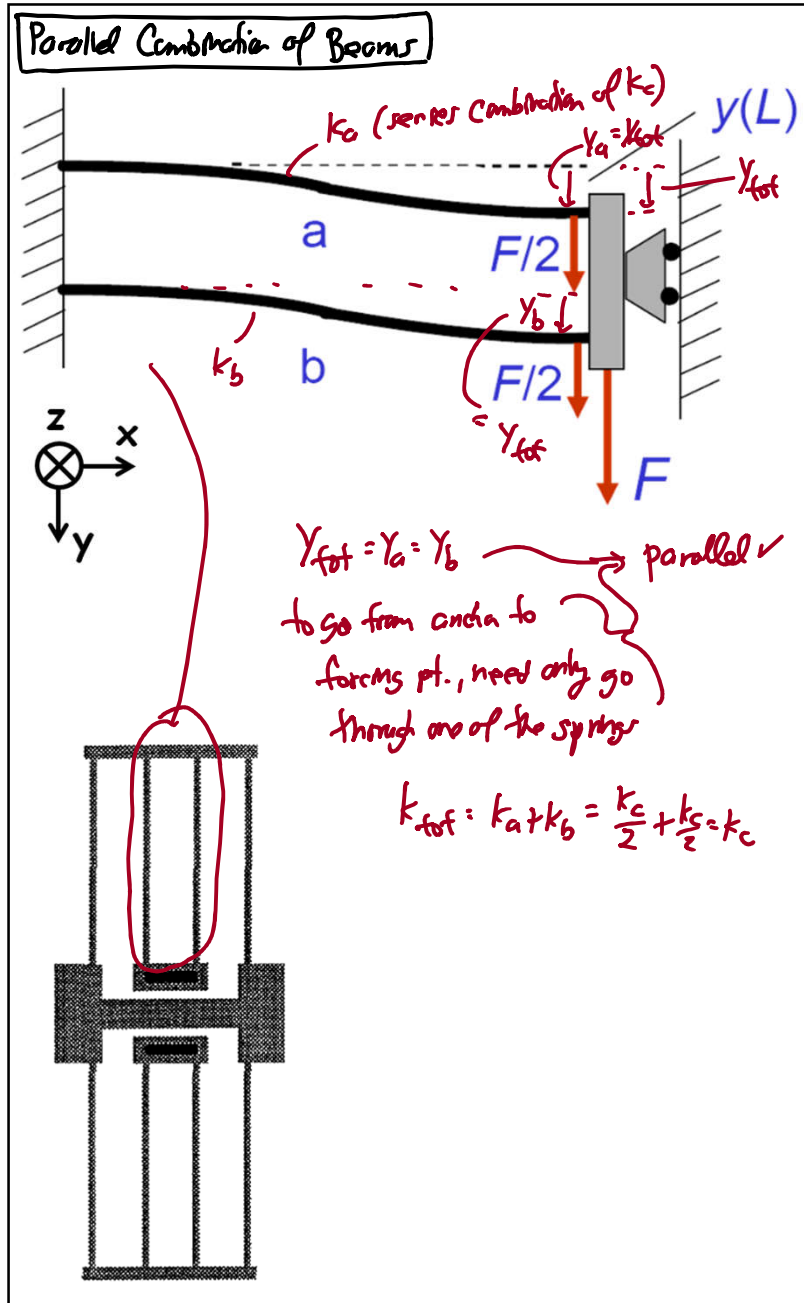 Parallel Combination of Beams
k_a (series combination of k_c)
y(L)
y_a = y_tot
y_tot
a
F/2
y_b
k_b
b
F/2
= y_tot
z
x
F
y
y_tot = y_a = y_b → parallel ✓
to go from anchor to
forcing pt., need only go
through one of the springs
k_tot = k_a + k_b = k_c/2 + k_c/2 = k_c